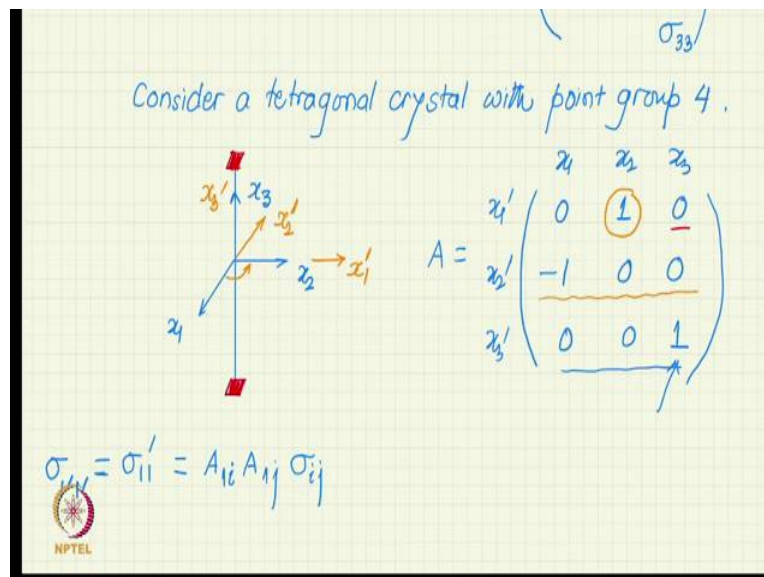 σ₃₃
Consider a tetragonal crystal with point group 4.
x₁ x₂ x₃
x₃′ x₃
x₂′
x₂ x₁′
x₁
A =
x₁′ 0 1 0
x₂′ -1 0 0
x₃′ 0 0 1
σ₁′₁′ = σ₁₁′ = A₁ᵢ A₁ⱼ σᵢⱼ
NPTEL